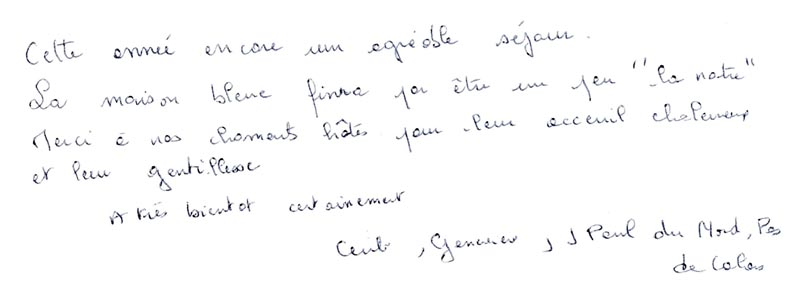 Cette année encore un agréable séjour.
La maison bleue finira par être un peu "la notre"
Merci à nos charmants hôtes pour leur acceuil chaleureux
et leur gentillesse
A très bientot certainement
, J Paul du Nord, Pas
de Calais